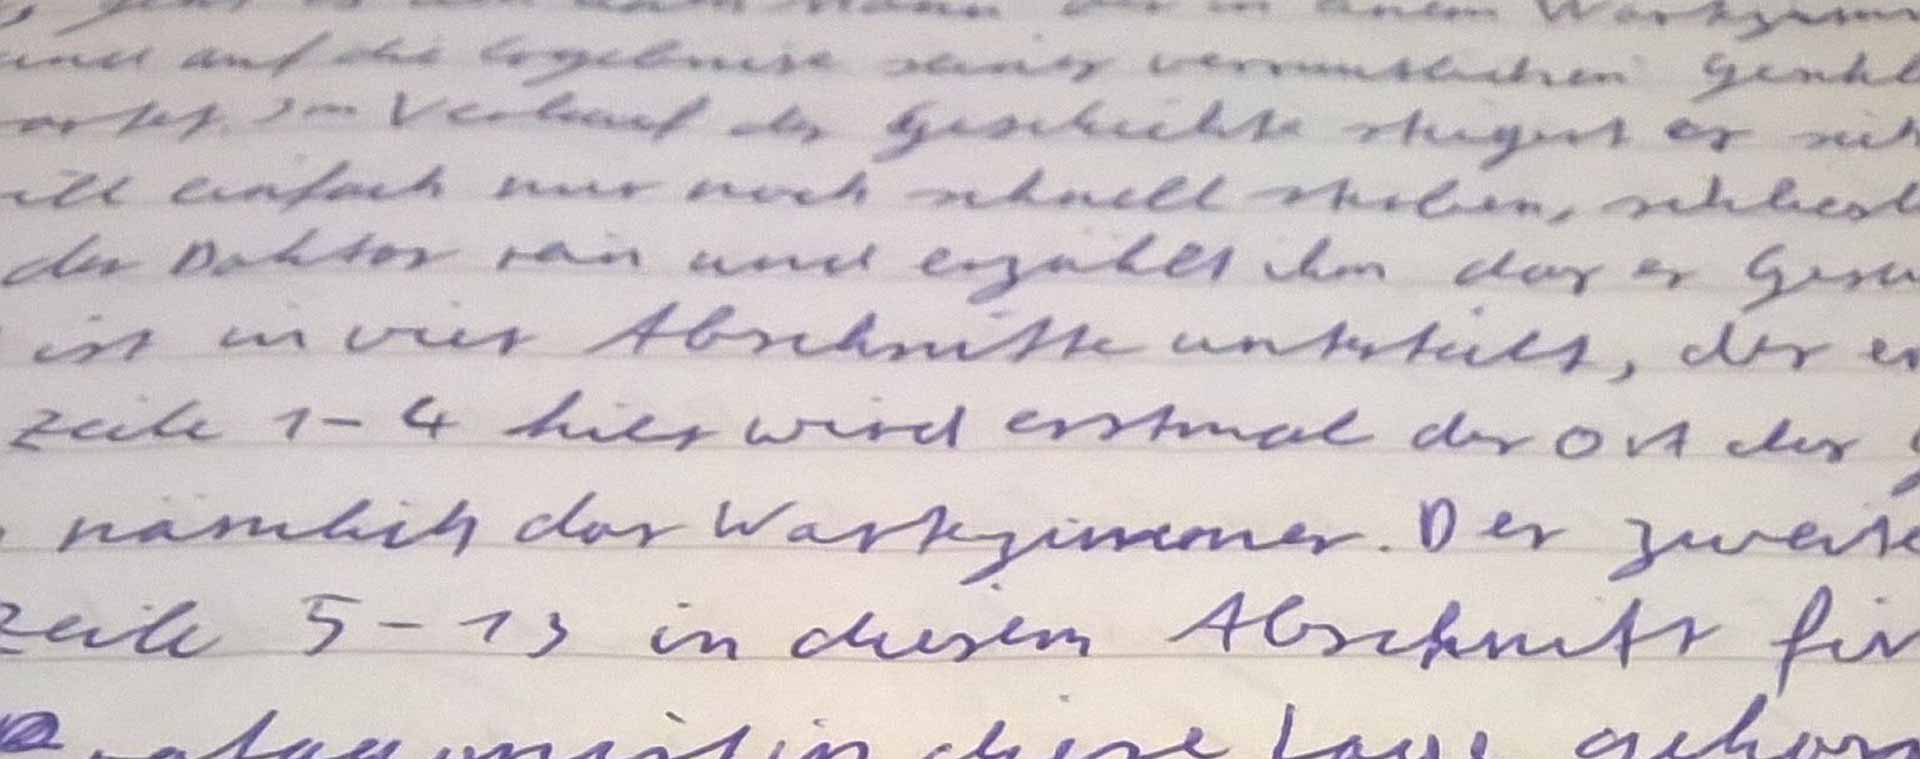 Mann der in einem Wartezimm
und auf die Ergebnisse seiner vermutlichen
wartet. Im Verlauf der Geschichte steigert er sich
will einfach nur noch schnell sterben, schliesl
der Doktor rein und erzählt ihm das er Gesu
ist in vier Abschnitte unterteilt, der er
Zeile 1-4 hier wird erstmal der Ort der G
nämlich das Wartezimmer. Der zweite
Zeile 5-13 in diesem Abschnitt fin
in diese Lage